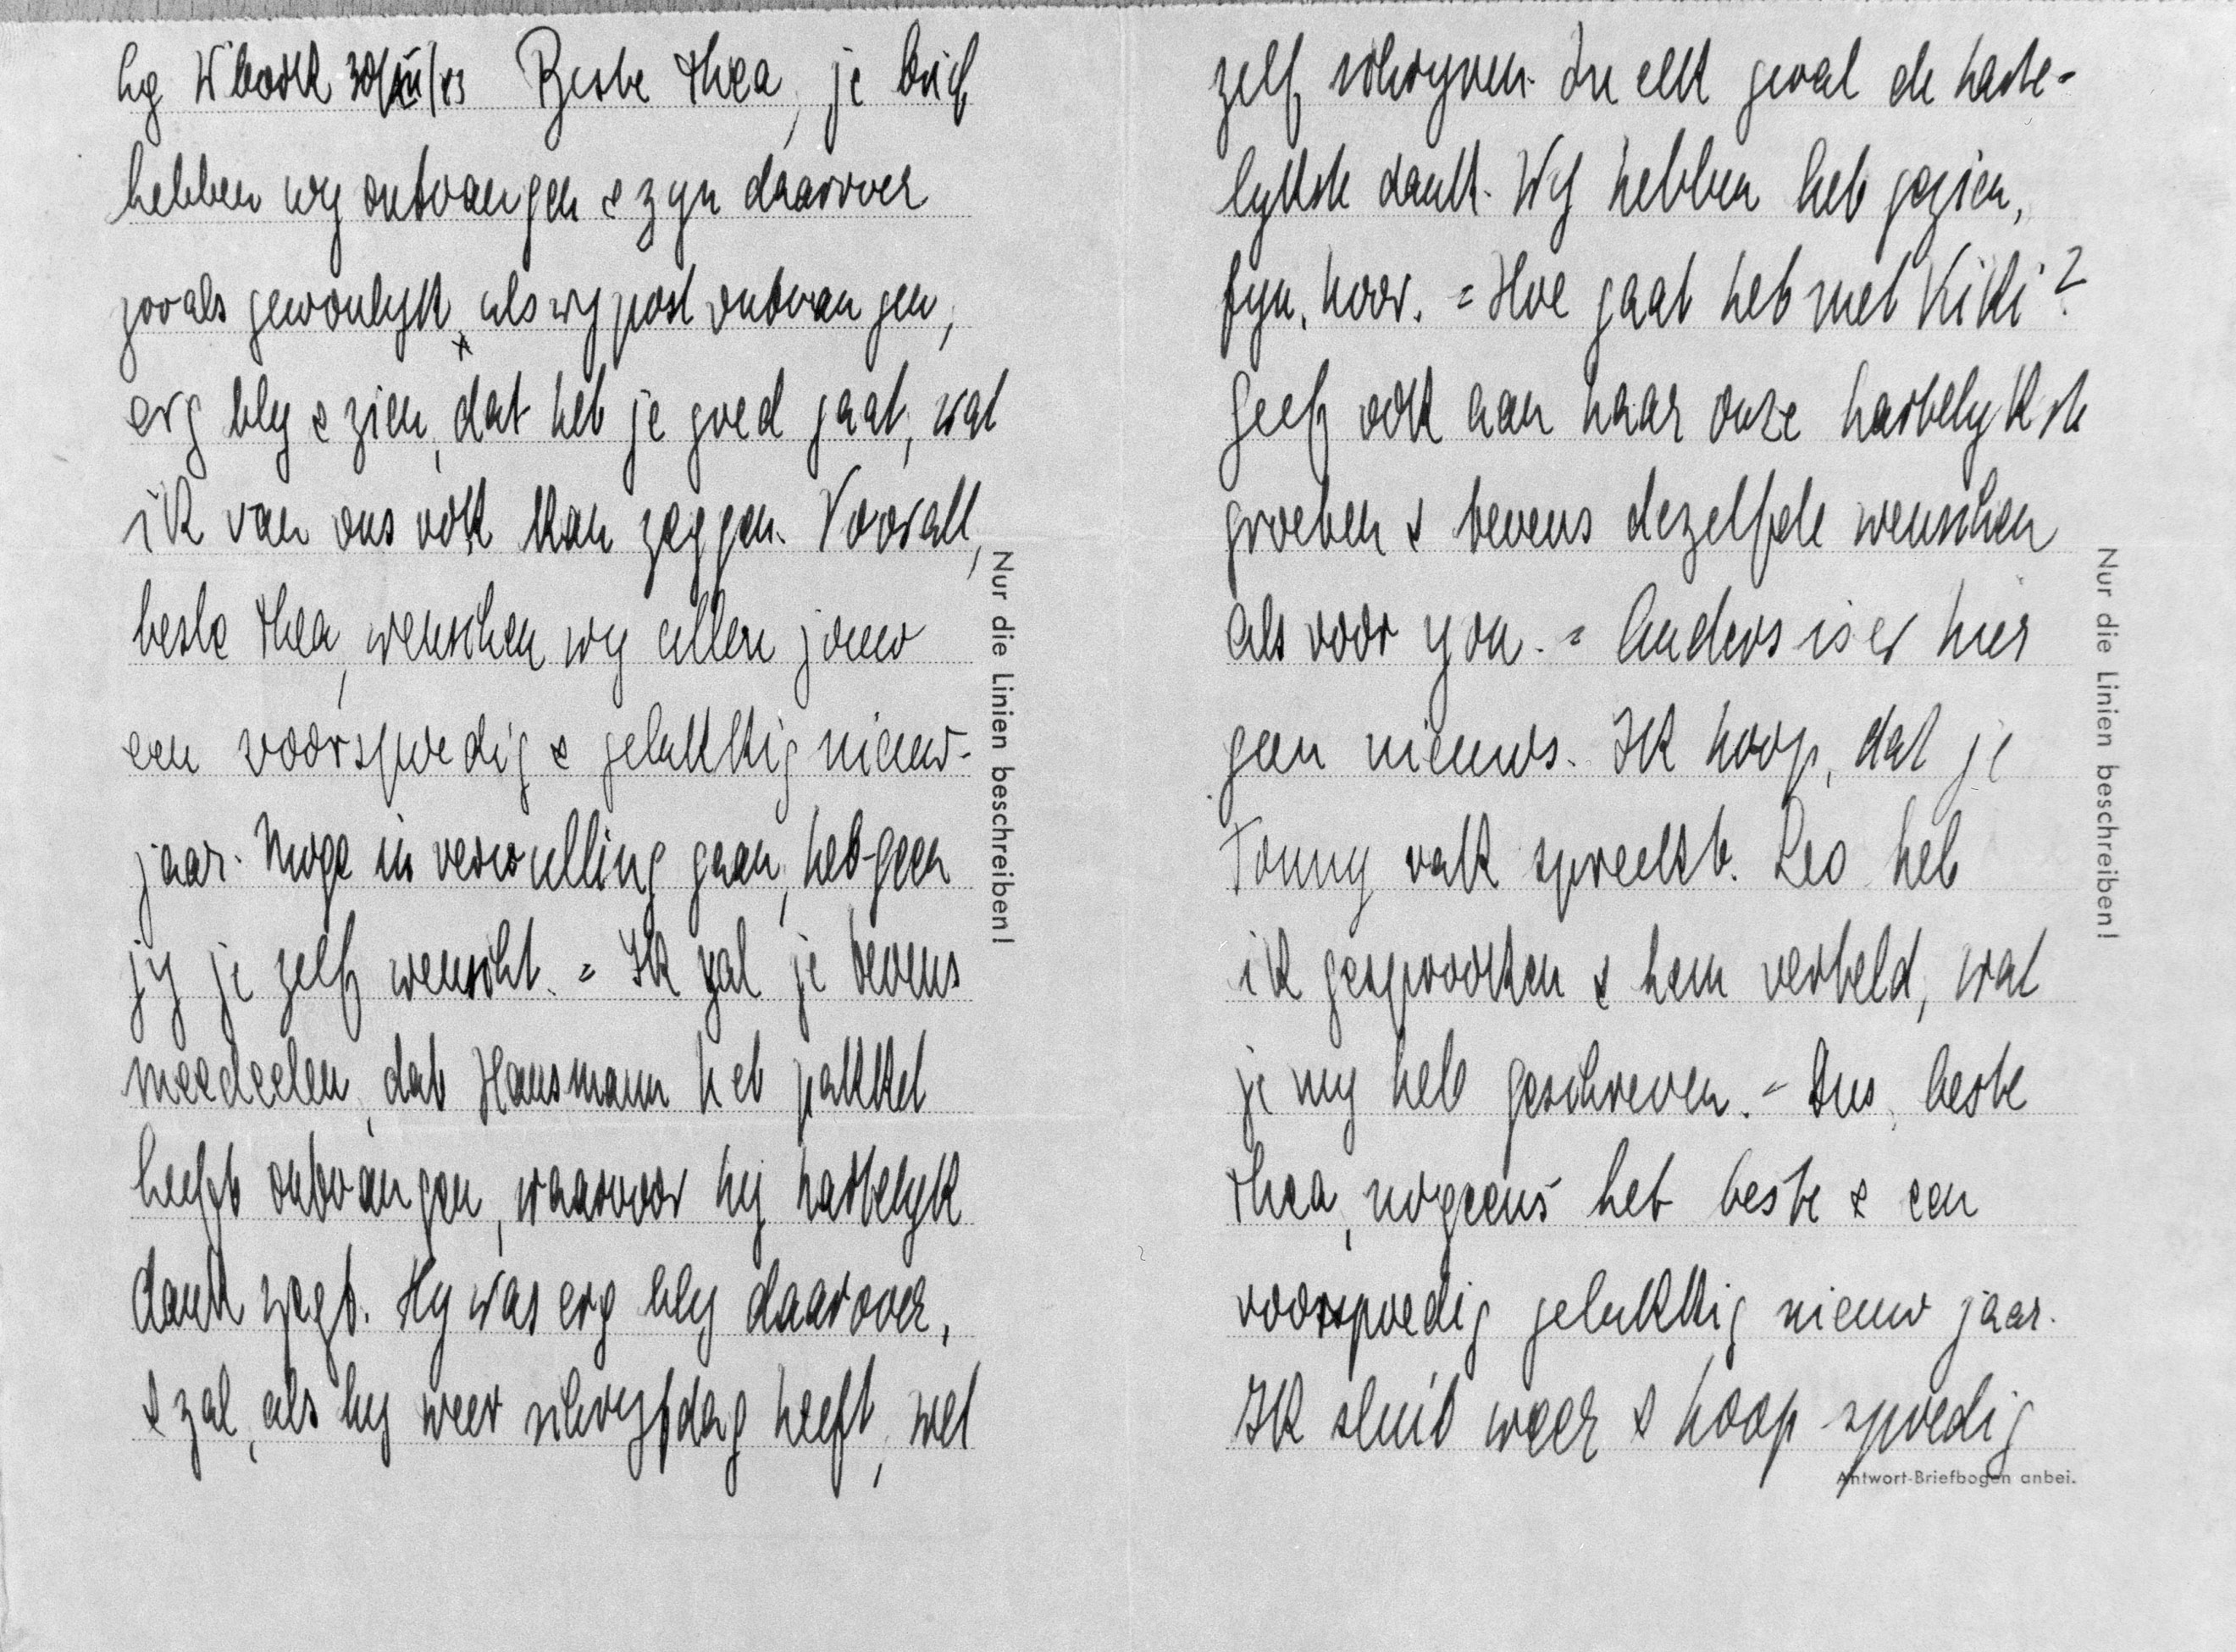 Lg W'bork 30/XII/43 Beste Thea, je brief
hebben wy ontvangen & zyn daarover
zooals gewoonlyk, als wy post ontvangen,
erg bly & zien, dat het je goed gaat, wat
ik van ons ook kan zeggen. Vooral,
beste Thea, wenschen wy allen jouw
een voorspoedig & gelukkig nieuw-
jaar. Moge in vervulling gaan, het-geen
jy je zelf wenscht. = Ik zal je tevens
meedeelen, dat Hausmann het pakket
heeft ontvangen, waarvoor hy hartelyk
dank zegt. Hy was erg bly daarover,
& zal, als hy weer schryfdag heeft, wel
Nur die Linien beschreiben!
zelf schryven. In elk geval de harte-
lykste dank. Wy hebben het gezien,
fyn, hoor. = Hoe gaat het met Kiki?
Geef ook aan haar onze hartelykste
groeten & tevens dezelfde wenschen
als voor you. = Anders is er hier
geen nieuws. Ik hoop, dat je
Tonny vaak spreekt. Leo heb
ik gesprooken & hem verteld, wat
je my heb geschreven. = Dus, beste
Thea, nogeens het beste & een
voorspoedig gelukkig nieuw jaar.
Ik sluit weer & hoop spoedig
Antwort-Briefbogen anbei.
Nur die Linien beschreiben!